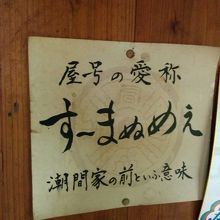 屋号の愛称
すーまぬめぇ
潮間家の前という意味